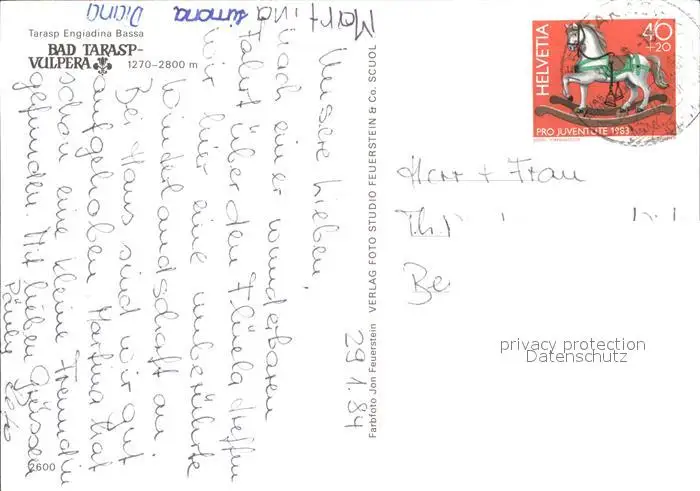 Tarasp Engiadina Bassa
BAD TARASP-
VULPERA 1270-2800 m
Diana
Simona
Martina
29.1.84
Unsere Lieben,
nach einer wunderbaren
Fahrt über den Flüela treffen
wir hier eine unberührte
Winterlandschaft an.
Bei Hans sind wir gut
aufgehoben. Martina hat
schon eine kleine Freundin
gefunden. Mit lieben Grüssen
2600
Farbfoto Jon Feuerstein VERLAG FOTO STUDIO FEUERSTEIN & Co. SCUOL
HELVETIA
40
+20
PRO JUVENTUTE 1983
Herr + Frau
Th
Be
privacy protection
Datenschutz